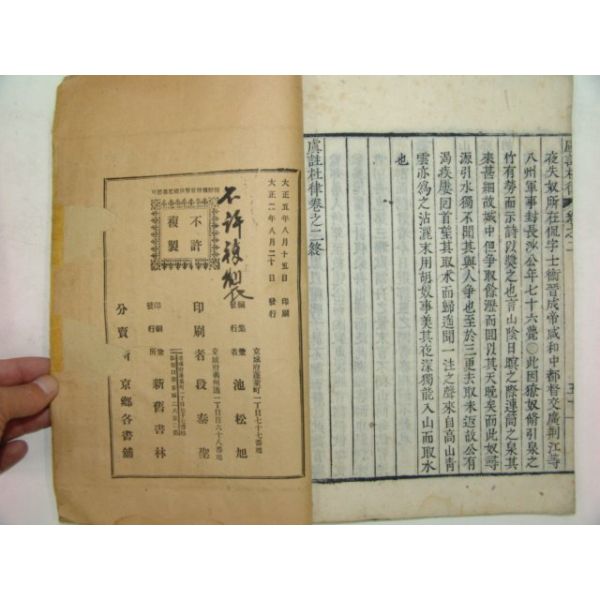 夜失奴所在侃字士衡晉成帝咸和中都督交廣荊江等
八州軍事封長沙公年七十六薨〇此因獠奴脩引泉之
竹有勞而示詩以奬之也言山陰日暝之際連筒之泉其
來甚細故城中但爭取餘瀝而回以其天晚矣而此奴尋
源引水獨不聞其與人爭也至於三更去取未返故公有
渴疾屢回首望其取水而歸連聞一注之聲來自高山靑
雲亦爲之沾灑末用胡奴事美其夜深獨能入山而取水
也
虞註杜律卷之二終
大正五年八月十五日 印刷
大正二年八月二十日 發行
不許複製
不許
複製
京城府蓬萊町一丁目七十七番地
編集兼
發行者 池松旭
印刷者 段泰聖
印刷兼
發行所 新舊書林
分賣所 京鄉各書鋪